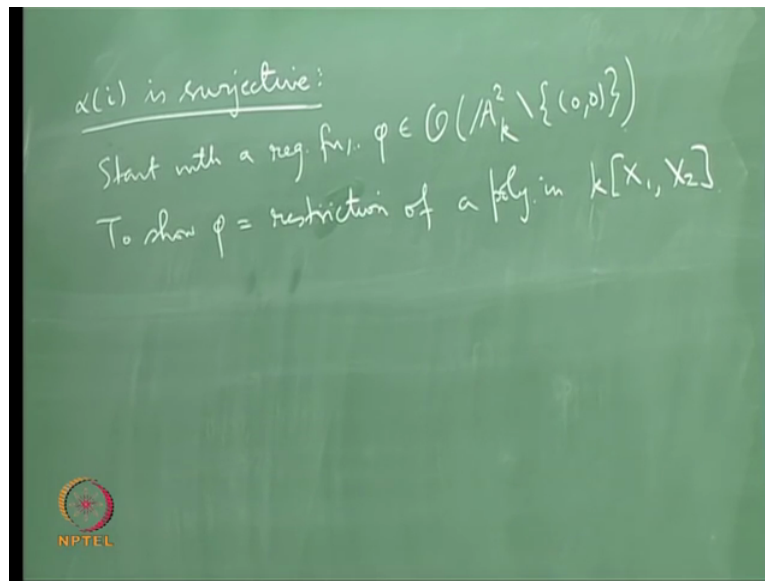 α(i) is surjective:
Start with a reg. fn,. φ ∈ O(A²_k \ {(0,0)})
To show φ = restriction of a poly. in k[X₁, X₂]
NPTEL